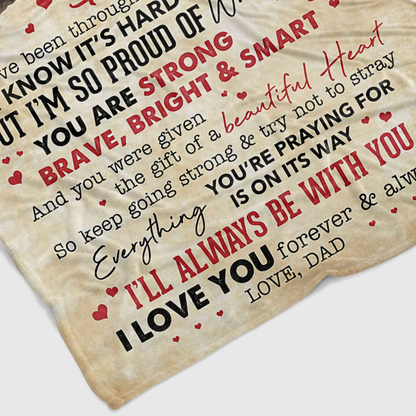 've been through
KNOW IT'S HARD
BUT I'M SO PROUD OF
YOU ARE STRONG
BRAVE, BRIGHT & SMART
And you were given
the gift of a beautiful Heart
So keep going strong & try not to stray
Everything YOU'RE PRAYING FOR
IS ON ITS WAY
I'LL ALWAYS BE WITH YOU
I LOVE YOU forever & alw
LOVE, DAD